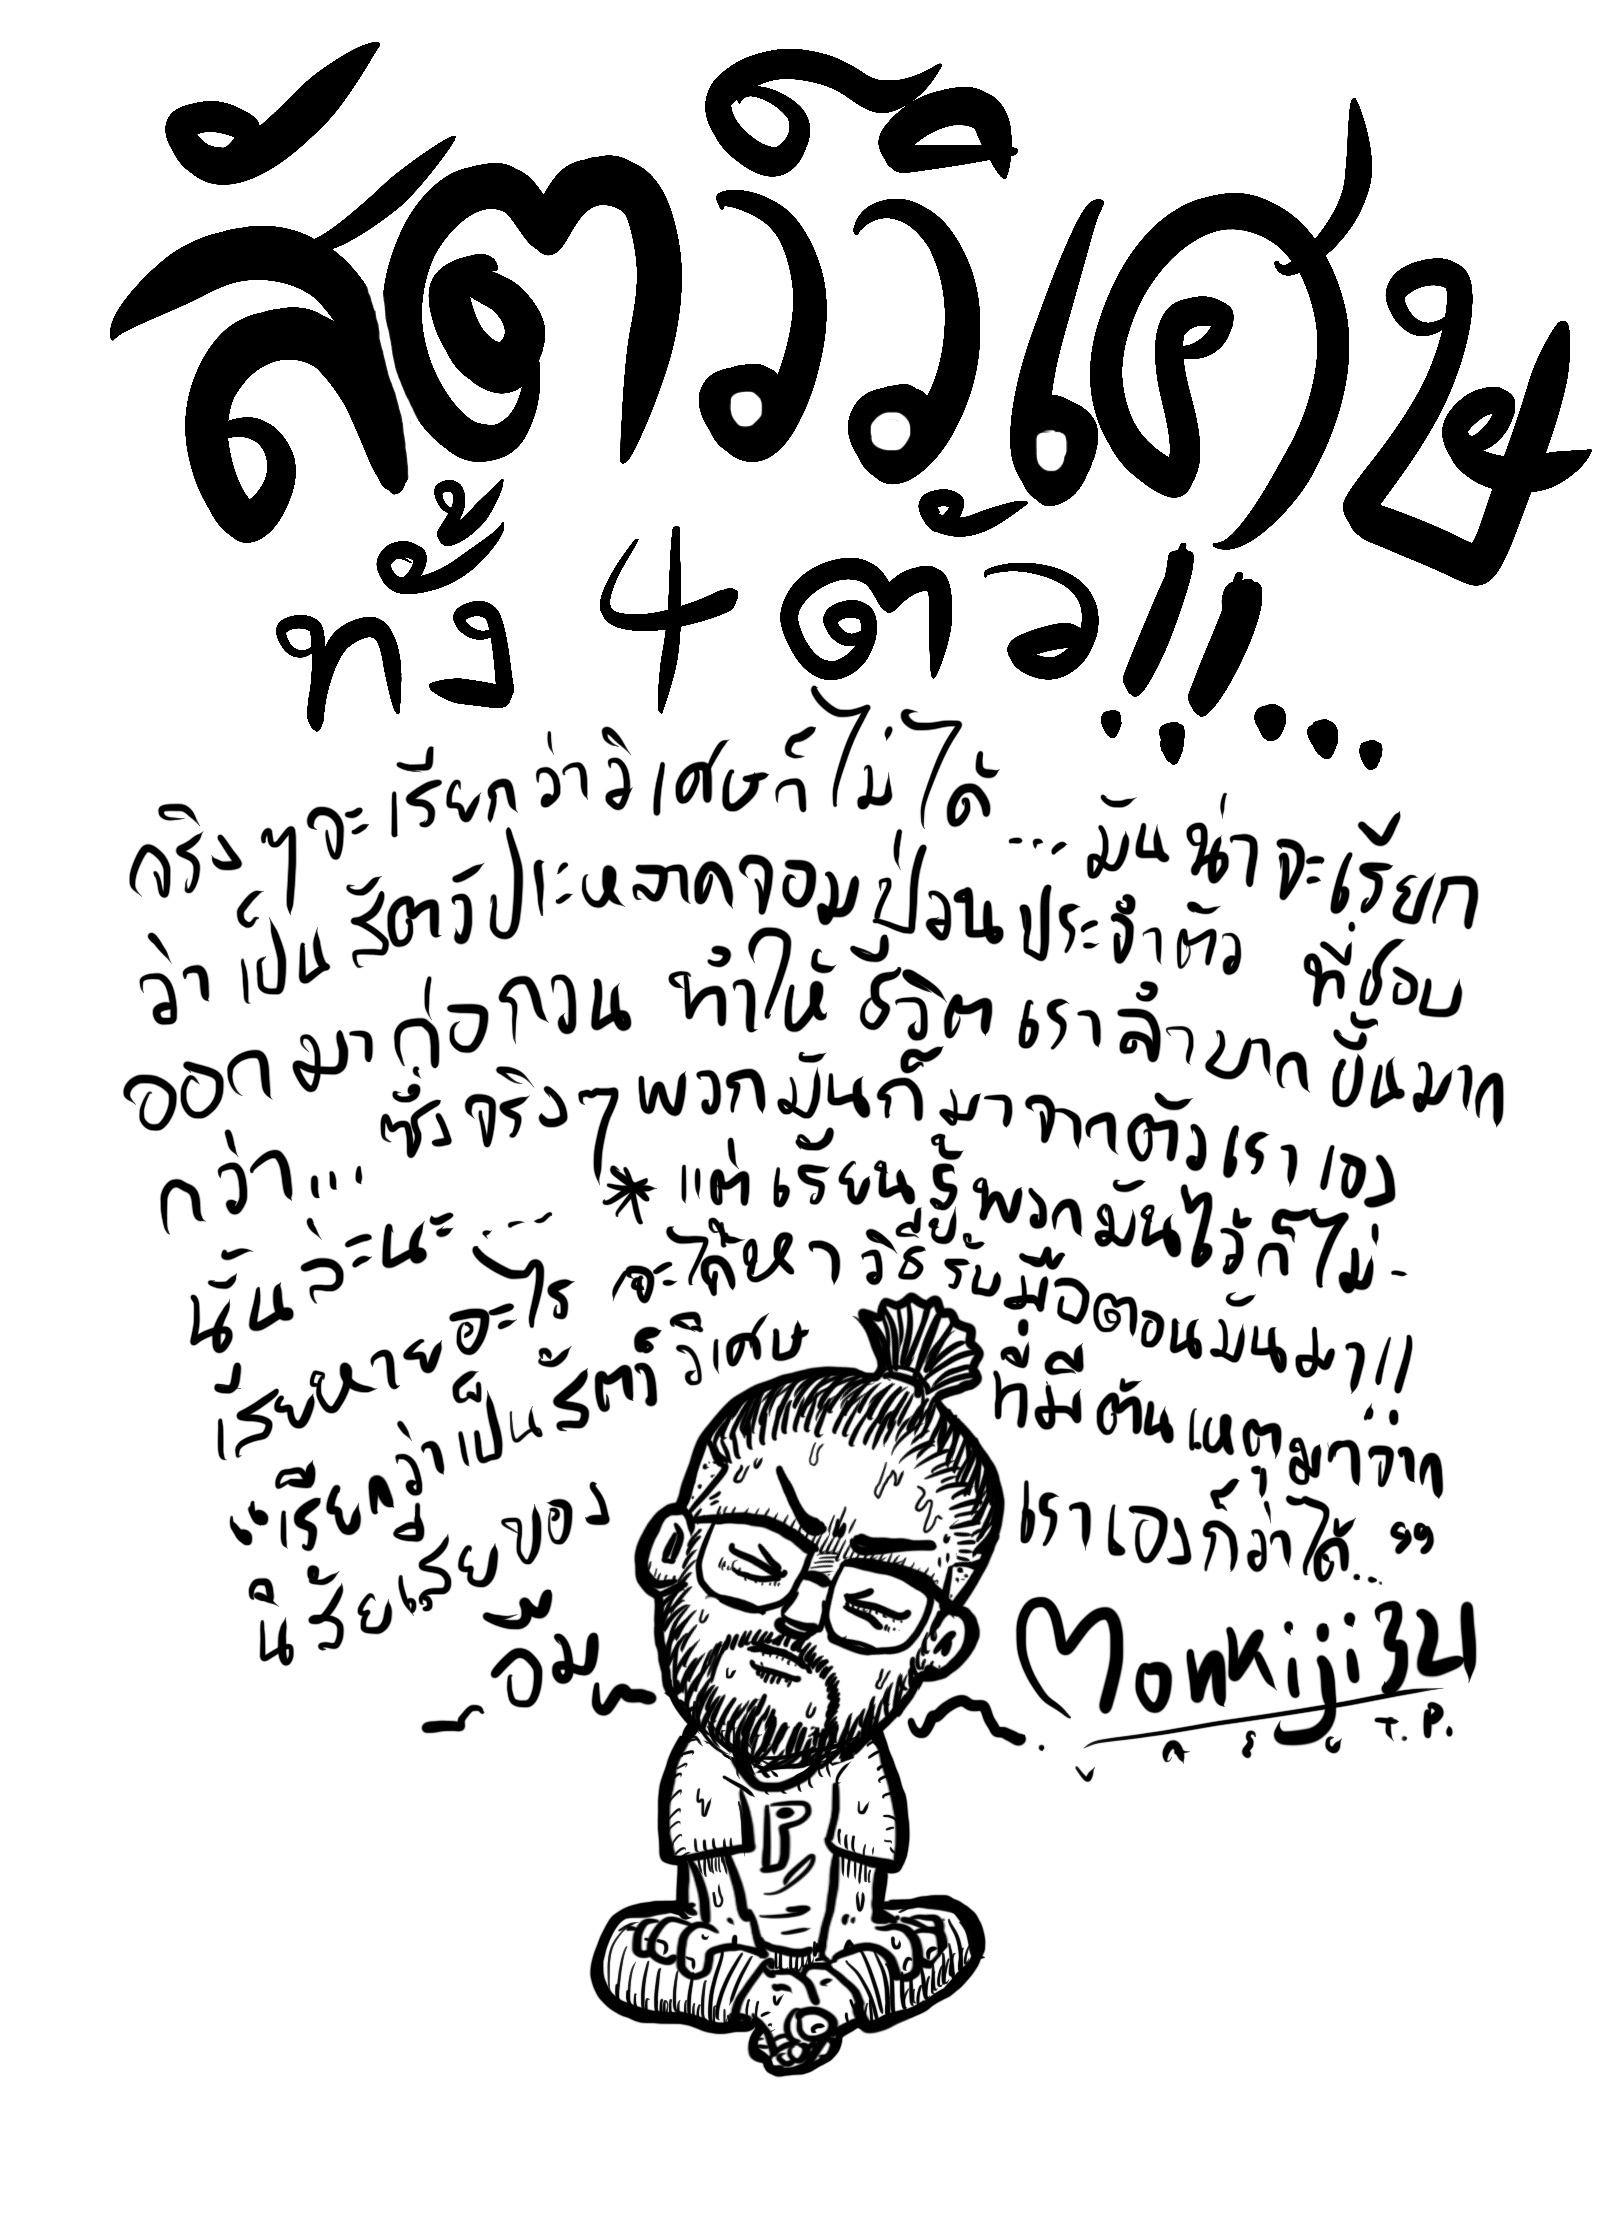 สัตว์วิเศษ
ทั้ง 4 ตัว!!...
จริงๆจะเรียกว่าวิเศษก็ไม่ได้... มันน่าจะเรียก
ว่าเป็นสัตว์ประหลาดจอมป่วนประจำตัว ที่ชอบ
ออกมาก่อกวน ทำให้ชีวิตเราลำบากขึ้นมาก
กว่า... ซึ่งจริงๆ พวกมันก็มาจากตัวเราเอง
นั้นล่ะนะ... * แต่เรียนรู้พวกมันไว้ก็ไม่-
เสียหายอะไร จะได้หาวิธีรับมือตอนมันมา!!
"เรียกว่าเป็นสัตว์วิเศษ ที่มีต้นเหตุมาจาก
นิสัยเสียของ เราเองก็ว่าได้..."
อืม
Monkiji321
T.P.
P